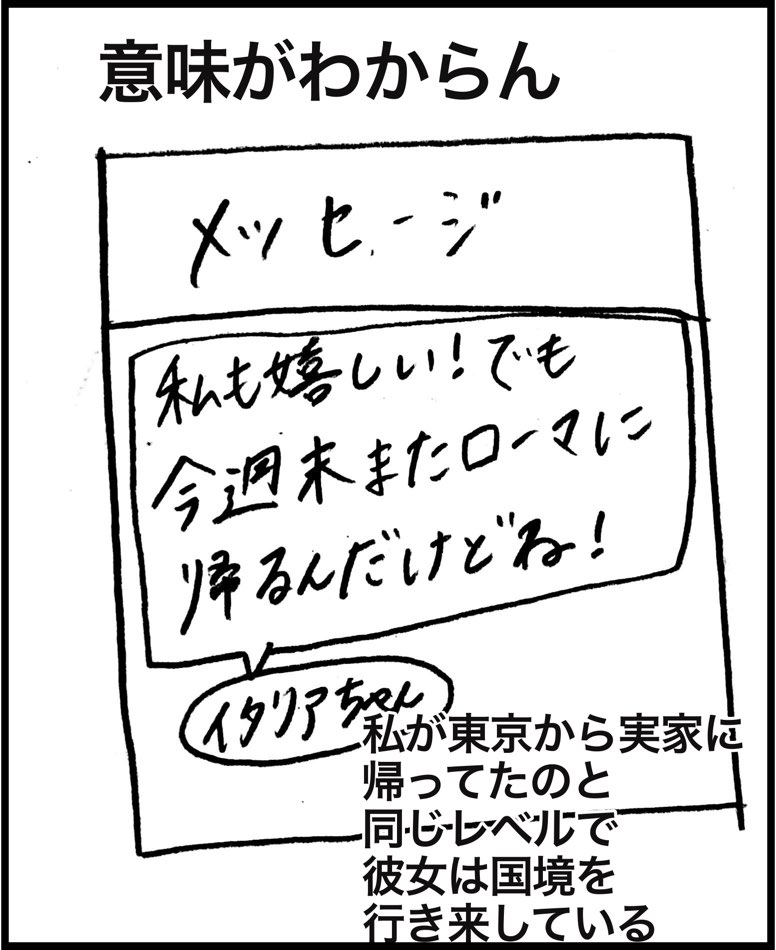 意味がわからん
メッセージ
私も嬉しい！でも
今週末またローマに
帰るんだけどね！
イタリアちゃん
私が東京から実家に
帰ってたのと
同じレベルで
彼女は国境を
行き来している